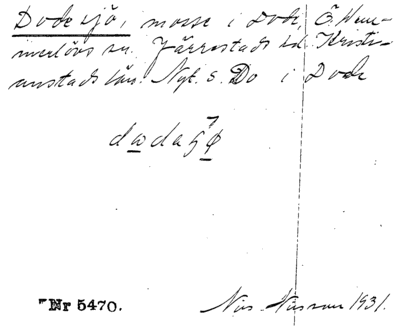 Dode sjö, mosse i Dode, Ö. Hem-
merlövs sn. Järrestads hd. Kristi-
anstads län. Nyt. s. Do i Dode
dωdaɧø
Nr 5470.
Nils Nilsson 1931.